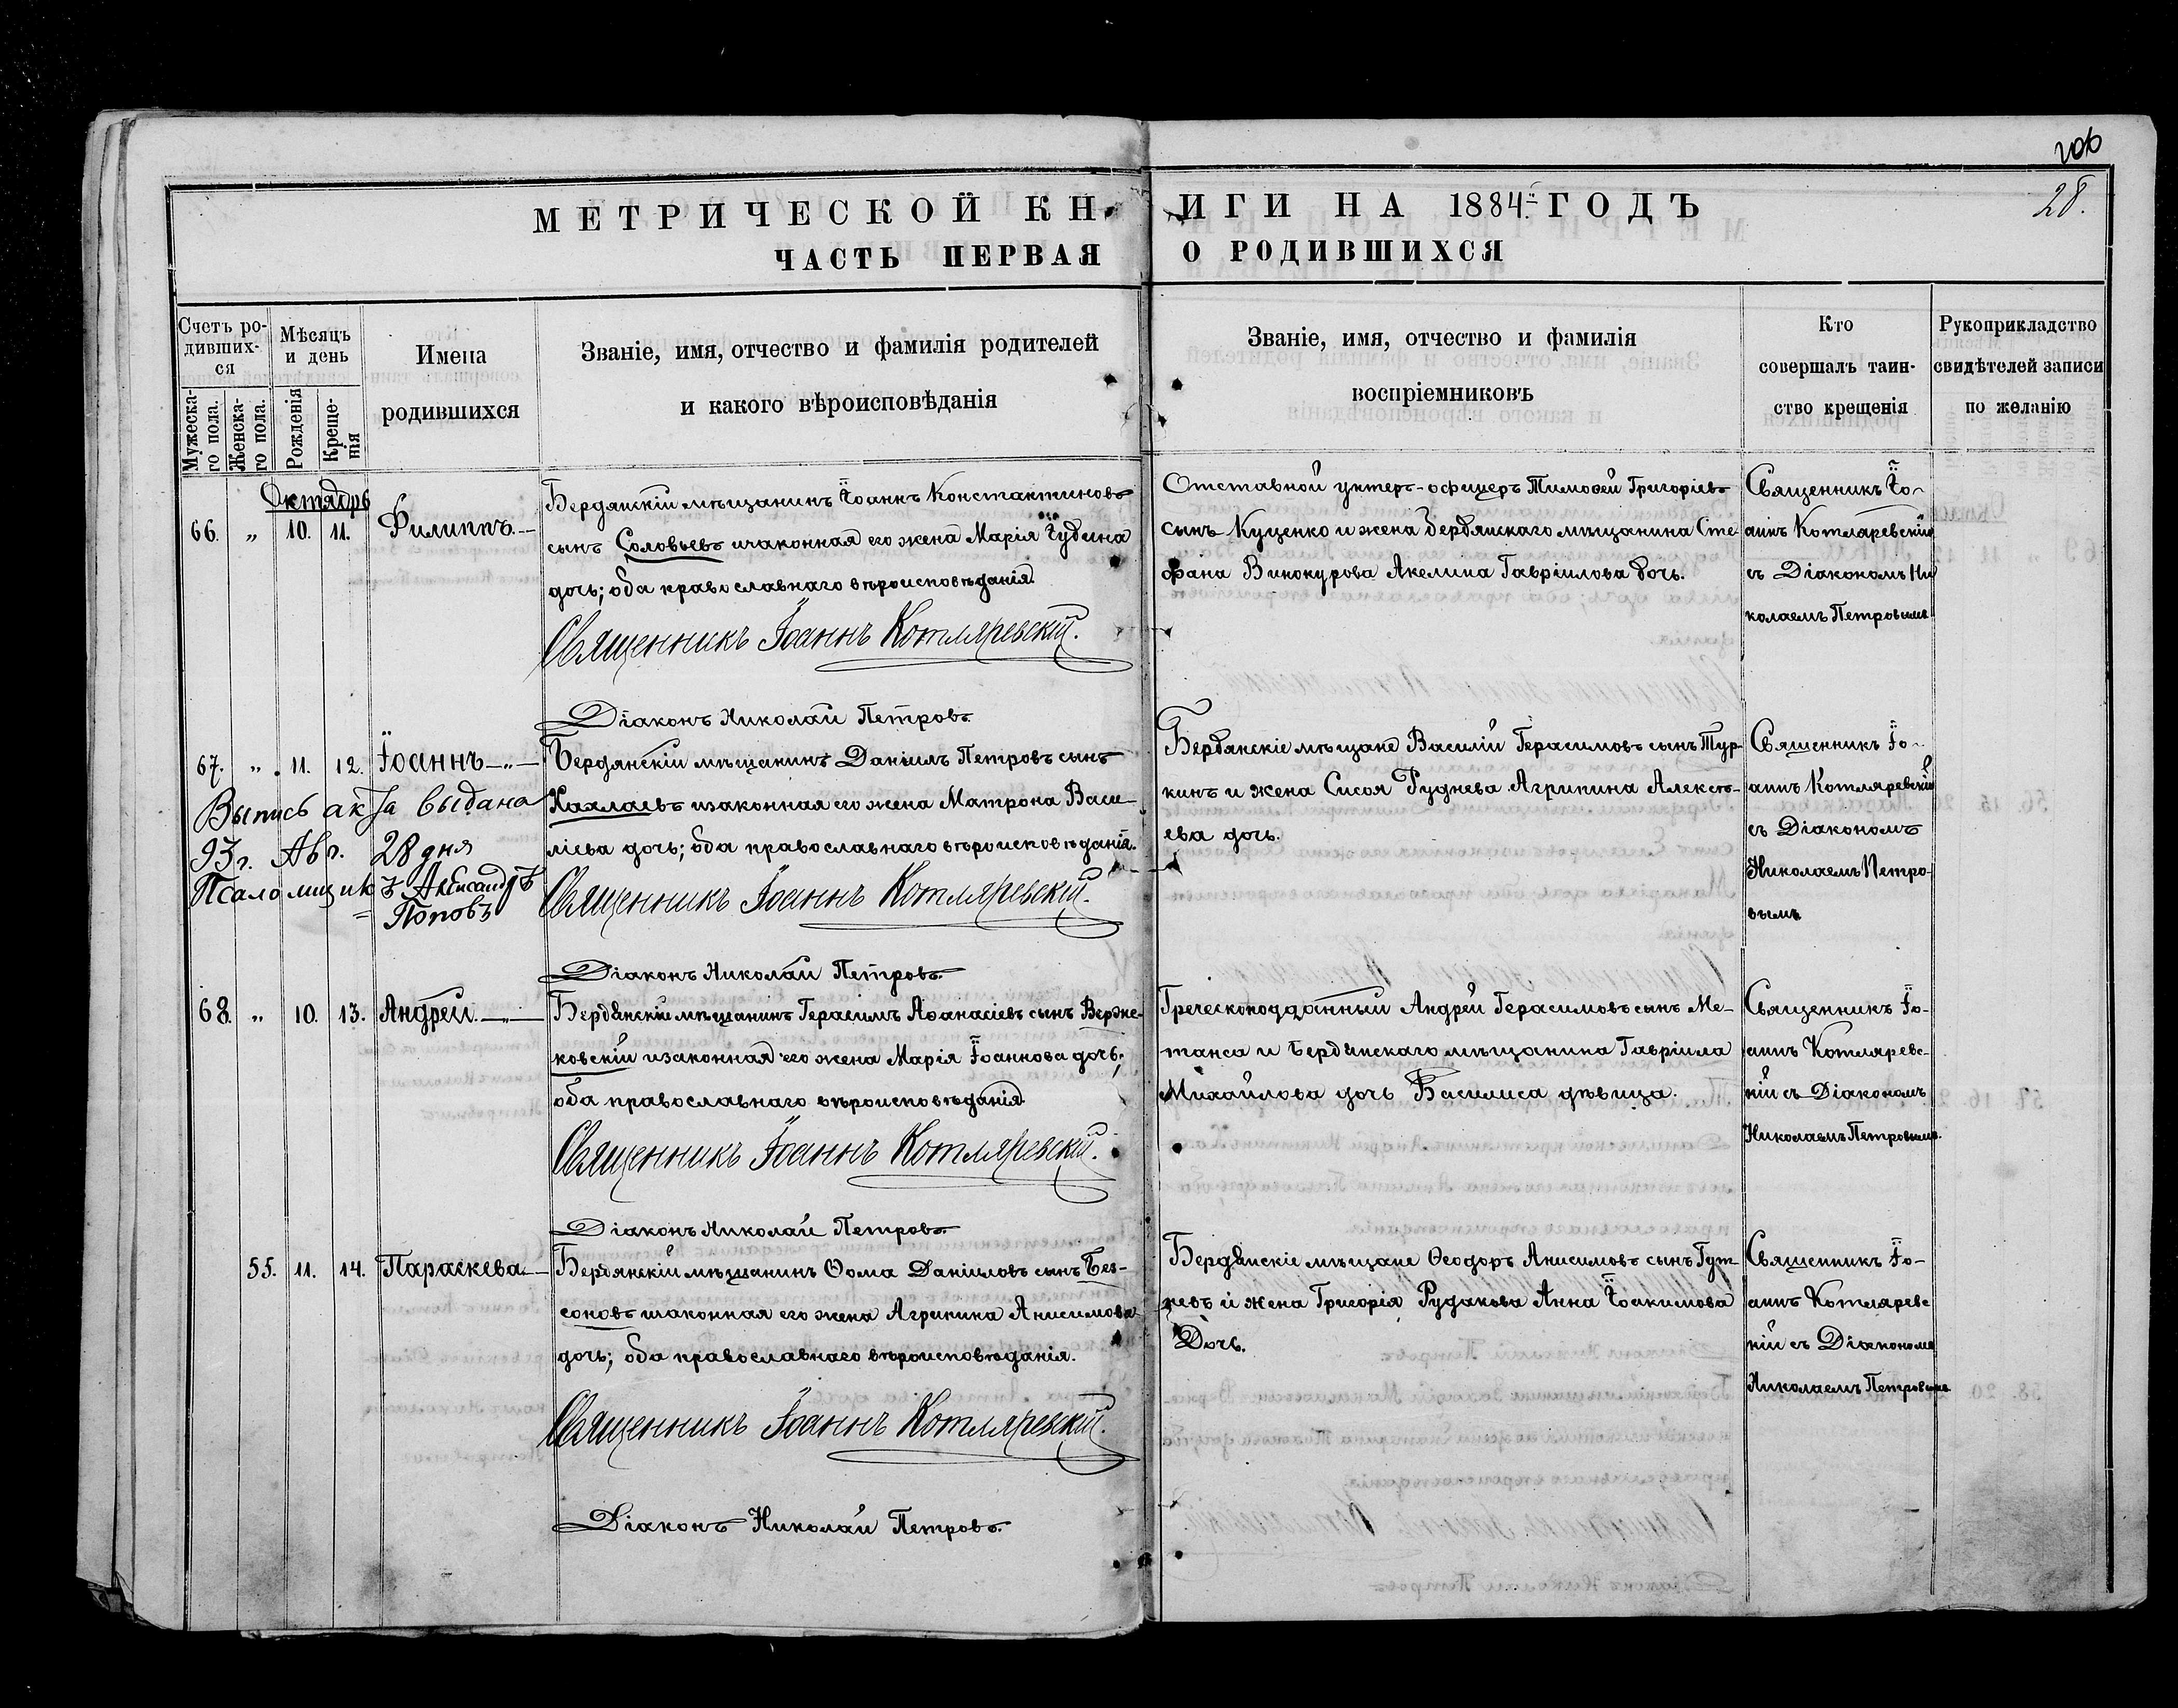 206
28.
МЕТРИЧЕСКОЙ КНИГИ НА 1884й ГОДЪ
ЧАСТЬ ПЕРВАЯ О РОДИВШИХСЯ
Счетъ ро-
дивших-
ся
Мужеска-
го пола.
Женска-
го пола.
Мѣсяцъ
и день
Рожденія
Креще-
нія
Имена
родившихся
Званіе, имя, отчество и фамилія родителей
и какого вѣроисповѣданія
Званіе, имя, отчество и фамилія
воспріемниковъ
Кто
совершалъ таин-
ство крещенія
Рукоприкладство
свидѣтелей записи
по желанію
Октябрь
66. „ 10. 11. Филиппъ.—
Бердянскій мѣщанинъ Іоаннъ Константиновъ
сынъ Соловьевъ и законная его жена Марія
дочь; оба православнаго вѣроисповѣданія.
Священникъ Іоаннъ Котляревскій.
Діаконъ Николай Петровъ.
Отставной унтеръ-офицеръ Тимоѳей Григоріевъ
сынъ Куценко и жена бердянскаго мѣщанина Сте-
фана Винокурова Акелина Гавріилова дочь.
Священникъ Іо-
аннъ Котляревскій
съ Діакономъ Ни
колаемъ Петровымъ
67. „ 11. 12. Іоаннъ—„—
Выпись акта выдана
93г. Авг. 28 дня
Псаломщикъ Александръ
Поповъ
Бердянскій мѣщанинъ Даніилъ Петровъ сынъ
Кахлаевъ и законная его жена Матрона Васи-
ліева дочь; оба православнаго вѣроисповѣданія.
Священникъ Іоаннъ Котляревскій.
Діаконъ Николай Петровъ.
Бердянскіе мѣщане Василій Герасимовъ сынъ Тур-
кинъ и жена Сисоя Руднева Агрипина Алексѣ-
ева дочь.
Священникъ Іо-
аннъ Котляревскій
съ Діакономъ
Николаемъ Петро-
вымъ
68. „ 10. 13. Андрей.—„—
Бердянскій мѣщанинъ Герасимъ Аѳанасіевъ сынъ Верже-
ковскій и законная его жена Марія Іоаннова дочь;
оба православнаго вѣроисповѣданія.
Священникъ Іоаннъ Котляревскій.
Діаконъ Николай Петровъ.
Греческоподданный Андрей Герасимовъ сынъ Ме-
танса и Бердянскаго мѣщанина Гавріила
Михайлова дочь Василиса дѣвица.
Священникъ Іо-
аннъ Котляревс-
кій съ Діакономъ
Николаемъ Петровымъ.
55. 11. 14. Параскева.—
Бердянскій мѣщанинъ Ѳома Даніиловъ сынъ Без-
соновъ и законная его жена Агрипина Анисимова
дочь; оба православнаго вѣроисповѣданія.
Священникъ Іоаннъ Котляревскій.
Діаконъ Николай Петровъ.
Бердянскіе мѣщане Ѳеодоръ Анисимовъ сынъ
и жена Григорія Рудакова Анна Іоакимова
Дочь.
Священникъ Іо-
аннъ Котляревс
кій съ Діакономъ
Николаемъ Петровымъ